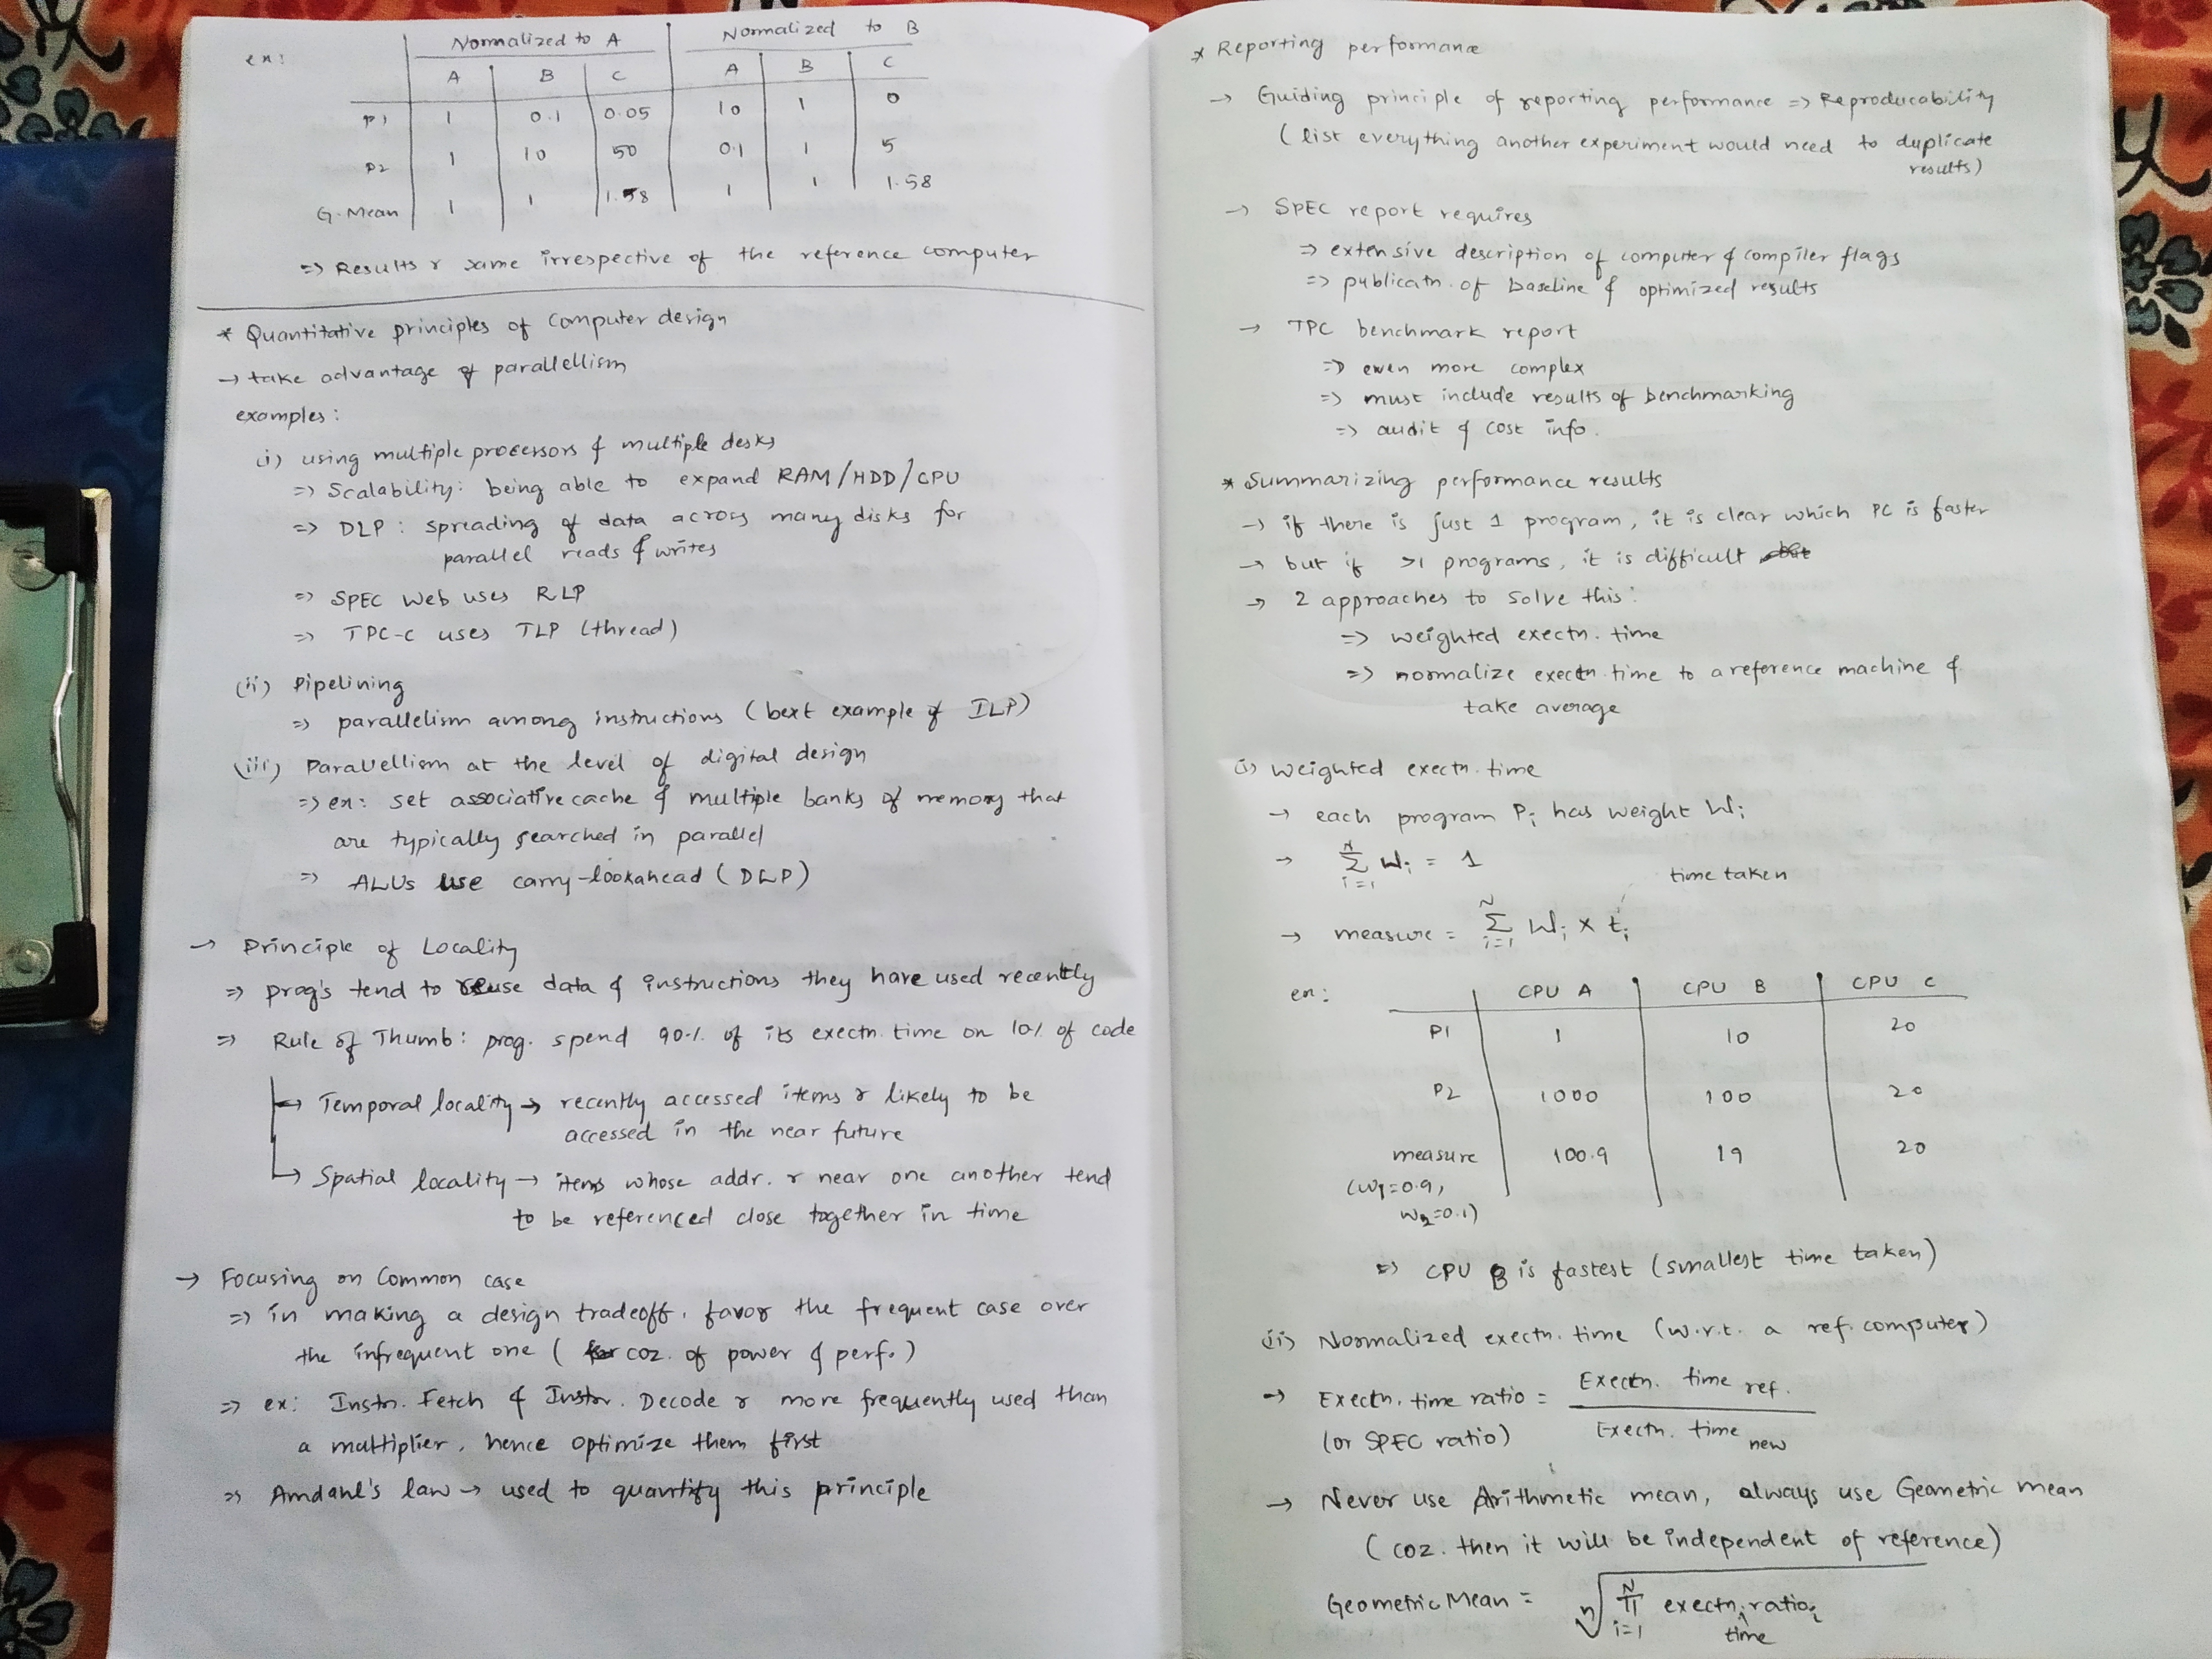 ex:
Normalized to A | Normalized to B
A | B | C | A | B | C
P1 | 1 | 0.1 | 0.05 | 10 | 1 | 0
P2 | 1 | 10 | 50 | 0.1 | 1 | 5
G.Mean | 1 | 1 | 1.58 | 1 | 1 | 1.58
=> Results r same irrespective of the reference computer
* Quantitative principles of computer design
→ take advantage of parallellism
examples:
(i) using multiple processors & multiple desks
=> Scalability: being able to expand RAM/HDD/CPU
=> DLP: spreading of data across many disks for
parallel reads & writes
=> SPEC Web uses RLP
=> TPC-C uses TLP (thread)
(ii) Pipelining
=> parallelism among instructions (bext example of ILP)
(iii) Parallellism at the level of digital design
=> ex: set associative cache & multiple banks of memory that
are typically searched in parallel
=> ALUs use carry-lookahead (DLP)
→ Principle of Locality
=> prog's tend to reuse data & instructions they have used recently
=> Rule of Thumb: prog. spend 90% of its exectn. time on 10% of code
→ Temporal locality → recently accessed items r likely to be
accessed in the near future
→ Spatial locality → items whose addr. r near one another tend
to be referenced close together in time
→ Focusing on Common case
=> in making a design tradeoff, favor the frequent case over
the infrequent one ( coz. of power & perf.)
=> ex: Instn. Fetch & Instr. Decode r more frequently used than
a multiplier, hence optimize them first
=> Amdahl's law → used to quantify this principle
* Reporting performance
→ Guiding principle of reporting performance => Reproducability
(list everything another experiment would need to duplicate
results)
→ SPEC report requires
=> extensive description of computer & compiler flags
=> publicatn. of baseline & optimized results
→ TPC benchmark report
=> even more complex
=> must include results of benchmarking
=> audit & cost info.
* Summarizing performance results
→ if there is just 1 program, it is clear which PC is faster
→ but if >1 programs, it is difficult but
→ 2 approaches to solve this:
=> weighted exectn. time
=> normalize exectn time to a reference machine &
take average
(i) Weighted exectn. time
→ each program Pi has weight Wi
→ N Σ i=1 Wi = 1
time taken
→ measure = N Σ i=1 Wi × ti
ex: | CPU A | CPU B | CPU C
P1 | 1 | 10 | 20
P2 | 1000 | 100 | 20
measure | 100.9 | 19 | 20
(W1=0.9,
W2=0.1)
=> CPU B is fastest (smallest time taken)
(ii) Normalized exectn. time (w.r.t. a ref. computer)
→ Exectn. time ratio = Exectn. time ref. / Exectn. time new
(or SPEC ratio)
→ Never use Arithmetic mean, always use Geometric mean
(coz. then it will be independent of reference)
Geometric Mean = n√ N Π i=1 exectn. time ratio i